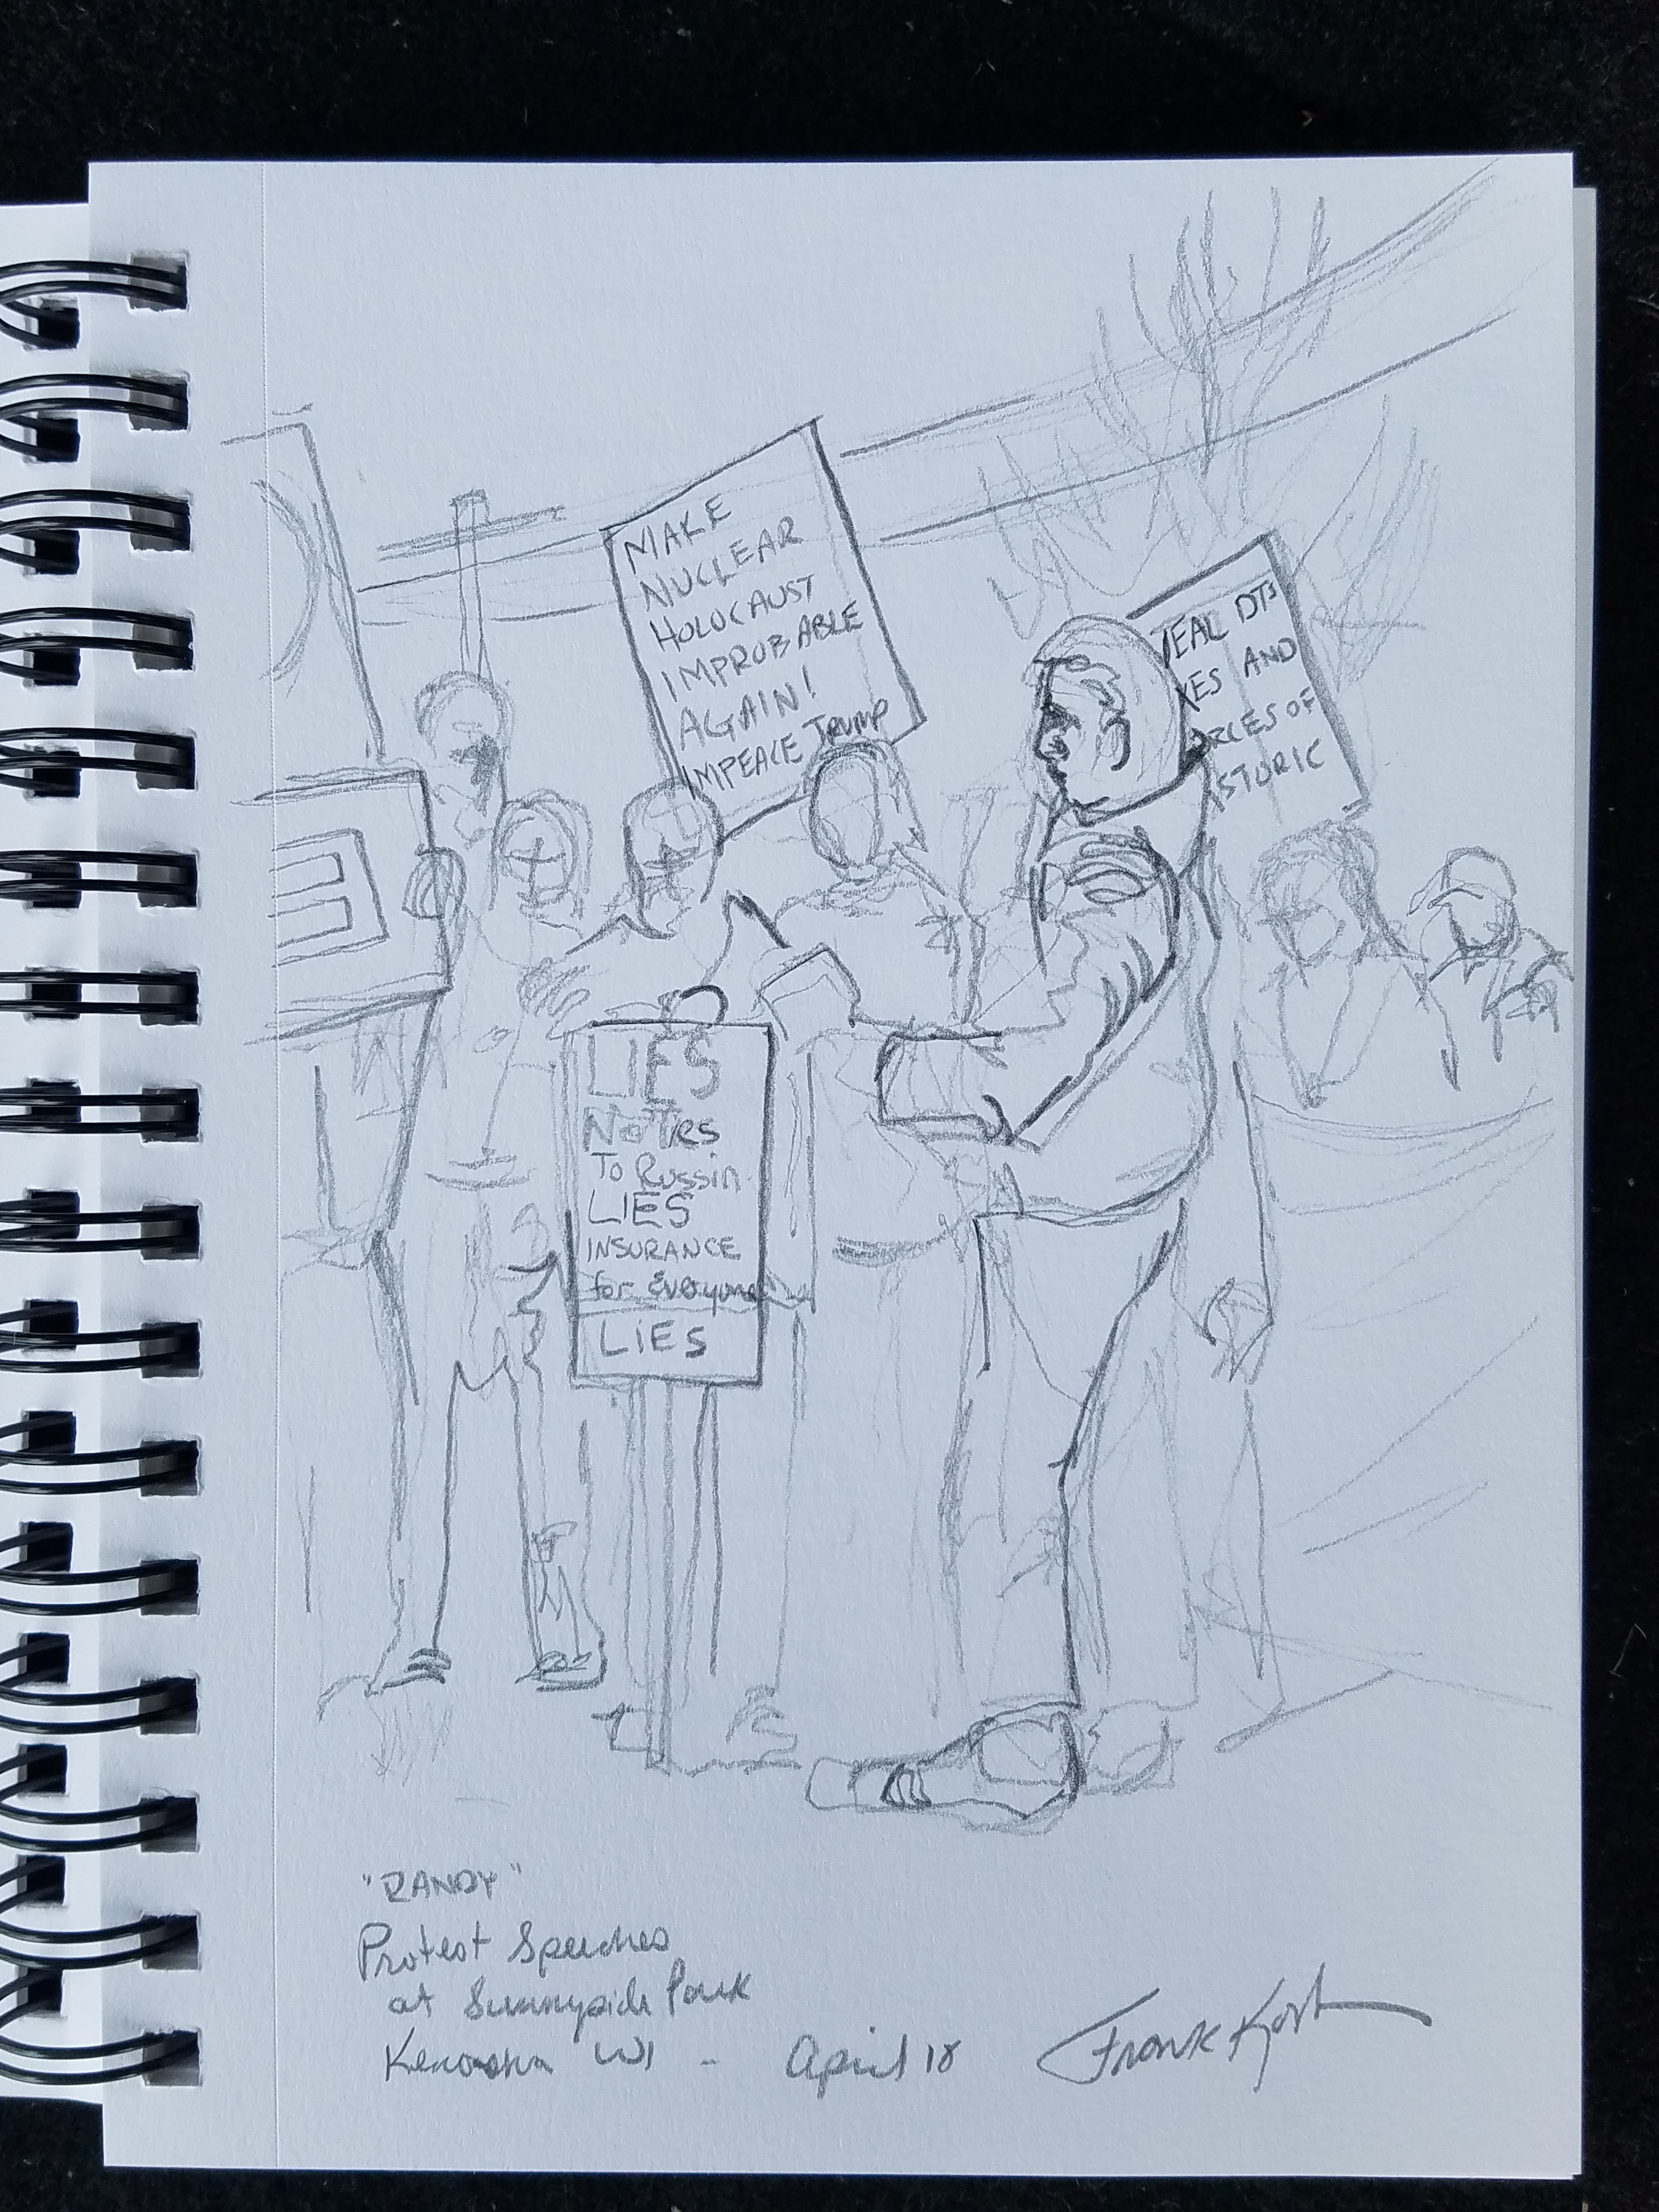 MAKE
NUCLEAR
HOLOCAUST
IMPROBABLE
AGAIN!
IMPEACE Trump
VEAL DTs
XES AND
RCES OF
ISTORIC
LIES
No Ties
To Russin
LIES
INSURANCE
for Everyone
LIES
"RANDY"
Protest Speeches
at Sunnyside Park
Kenosha WI - April 18
Frank